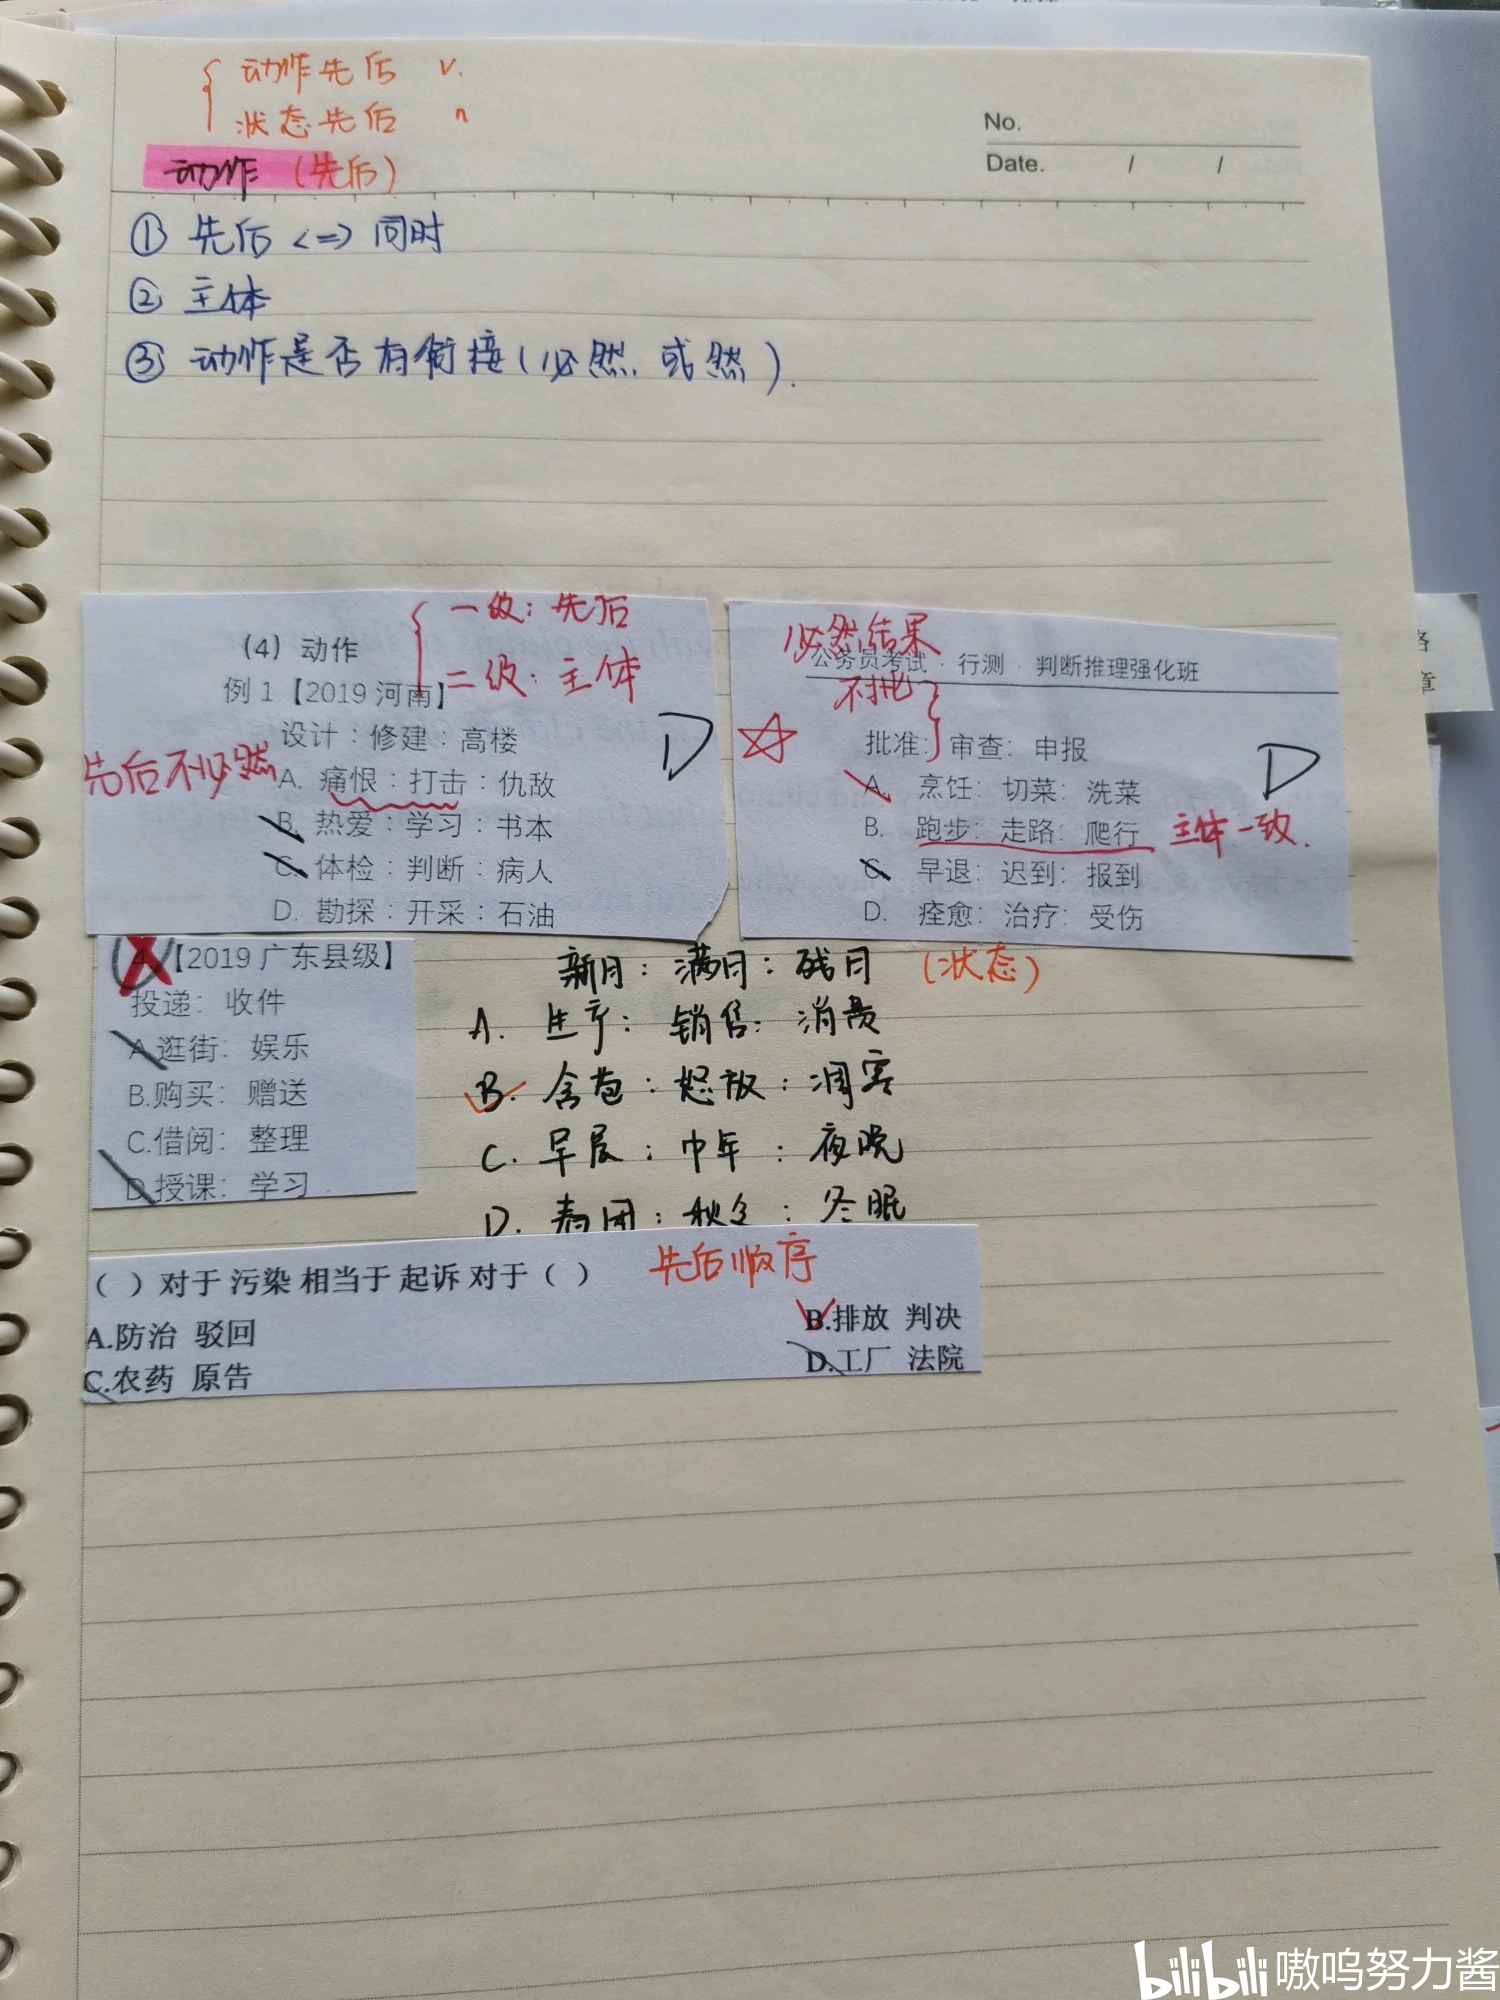 动作先后 v.
状态先后 n
动作（先后）
No.
Date. / /
① 先后 <=> 同时
② 主体
③ 动作是否有衔接（必然、或然）.
一级：先后
二级：主体
（4）动作
例 1【2019 河南】
设计：修建：高楼
先后不必然
A. 痛恨：打击：仇敌
B. 热爱：学习：书本
C. 体检：判断：病人
D. 勘探：开采：石油
D
必然结果
公务员考试·行测·判断推理强化班
不批
批准：审查：申报
A. 烹饪：切菜：洗菜
B. 跑步：走路：爬行 主体一致.
C. 早退：迟到：报到
D. 痊愈：治疗：受伤
D
【2019 广东县级】
投递：收件
A.逛街：娱乐
B.购买：赠送
C.借阅：整理
D.授课：学习
新月：满月：残月 （状态）
A. 生产：销售：消费
B. 含苞：怒放：凋零
C. 早晨：中年：夜晚
D. 春困：秋乏：冬眠
（ ）对于 污染 相当于 起诉 对于（ ） 先后顺序
A.防治 驳回
B.排放 判决
C.农药 原告
D.工厂 法院
bilibili 嗷呜努力酱